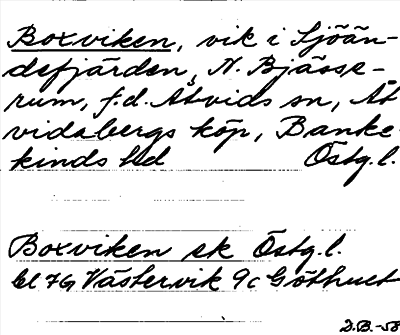 Boxviken, vik i Sjöän-
defjärden, N. Bjässe-
rum, f.d. Åtvids sn, Åt
vidabergs köp, Banke-
kinds hd Östg.l.
Boxviken sk Östg.l.
bl 7G Västervik 9c Göthult
D.B.-58